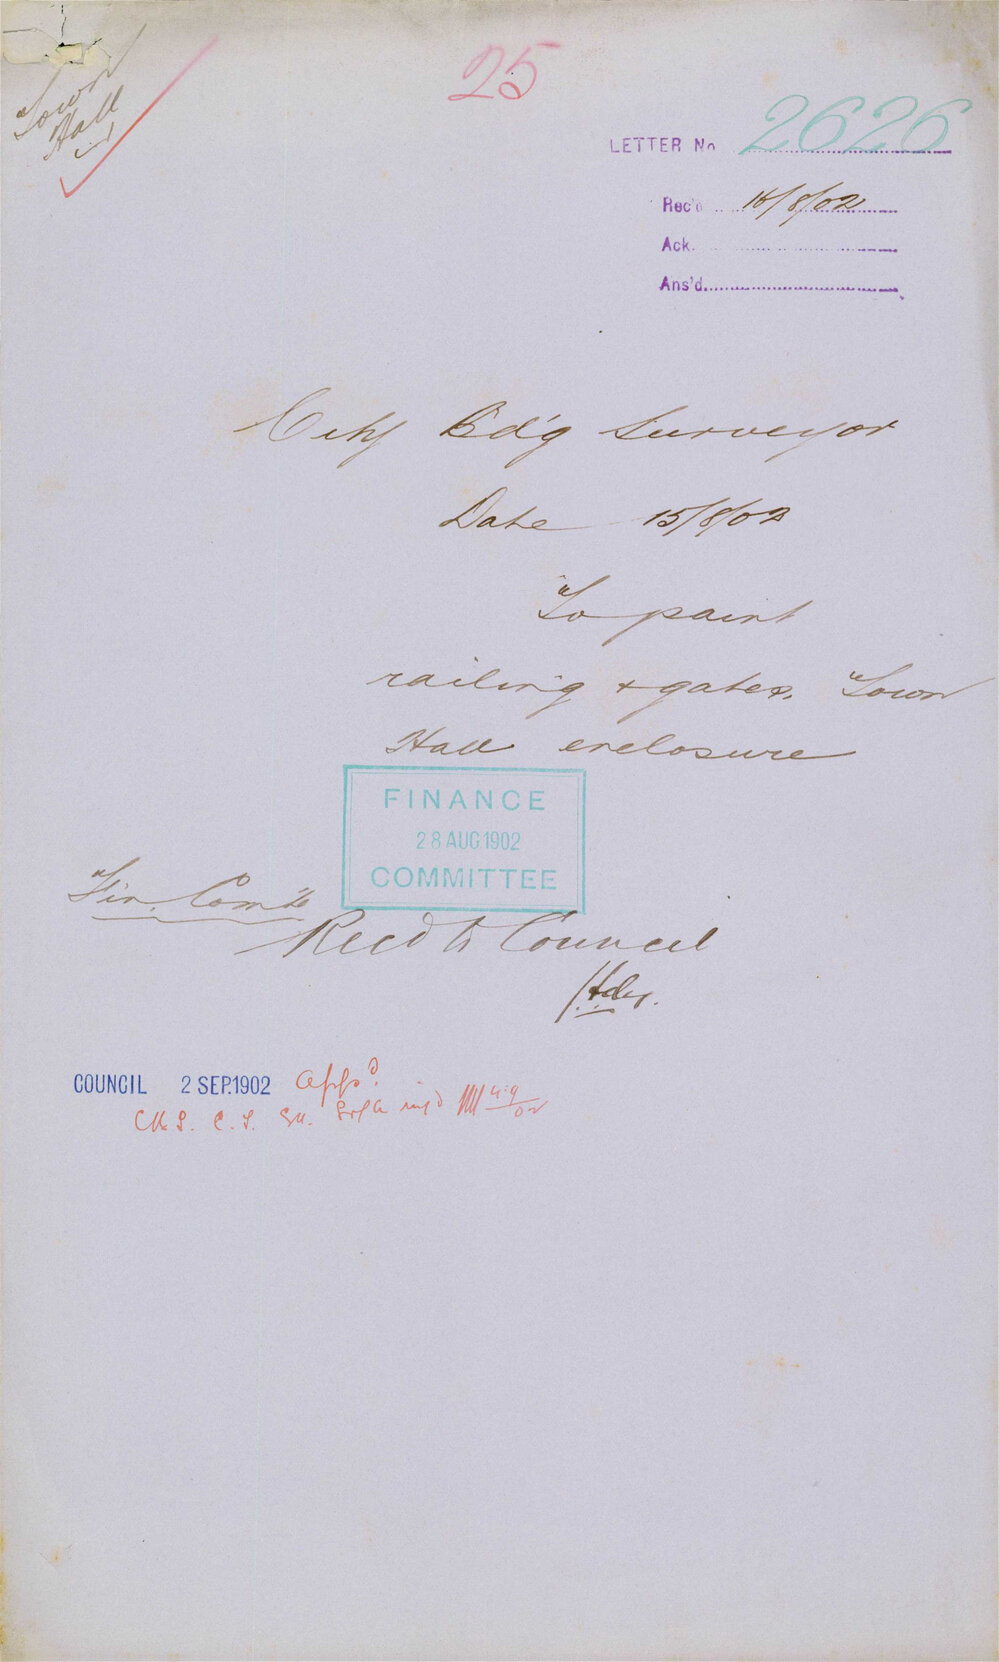 Town
Hall
25
LETTER No 2626
Rec'd 16/8/02
Ack.
Ans'd.
City Bd'g Surveyor
Date 15/8/02
To paint
railing + gates. Town
Hall enclosure
FINANCE
28 AUG 1902
COMMITTEE
Fin. Com'te
Recd to Council
COUNCIL 2 SEP. 1902 appd.
C.S. 4.9
02